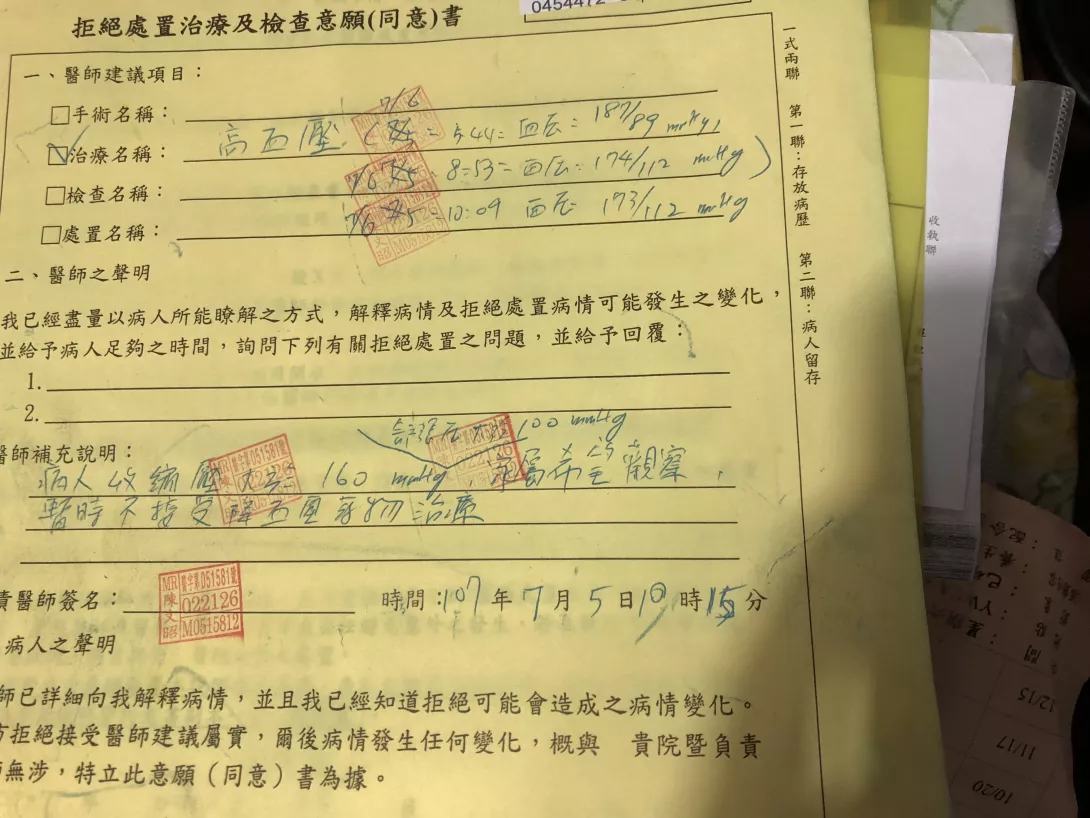 0454472
拒絕處置治療及檢查意願(同意)書
一、醫師建議項目：
手術名稱：
治療名稱：高血壓 5:44 = 血压 = 187/89 mmHg
檢查名稱： 8:53 = 血压 = 174/112 mmHg)
處置名稱： 10:09 血压 173/112 mmHg
二、醫師之聲明
我已經盡量以病人所能瞭解之方式，解釋病情及拒絕處置病情可能發生之變化，
並給予病人足夠之時間，詢問下列有關拒絕處置之問題，並給予回覆：
1.
2.
舒張压 100 mmHg
醫師補充說明：
病人收縮壓 160 mmHg，家屬希望觀察，
暫時不接受降血壓藥物治療
責醫師簽名：
時間：107年7月5日10時15分
MR
陳文昭
醫字第051581號
022126
M0515812
病人之聲明
師已詳細向我解釋病情，並且我已經知道拒絕可能會造成之病情變化。
方拒絕接受醫師建議屬實，爾後病情發生任何變化，概與 貴院暨負責
師無涉，特立此意願（同意）書為據。
一式兩聯 第一聯：存放病歷 第二聯：病人留存
收執聯
12/15
11/17
10/20